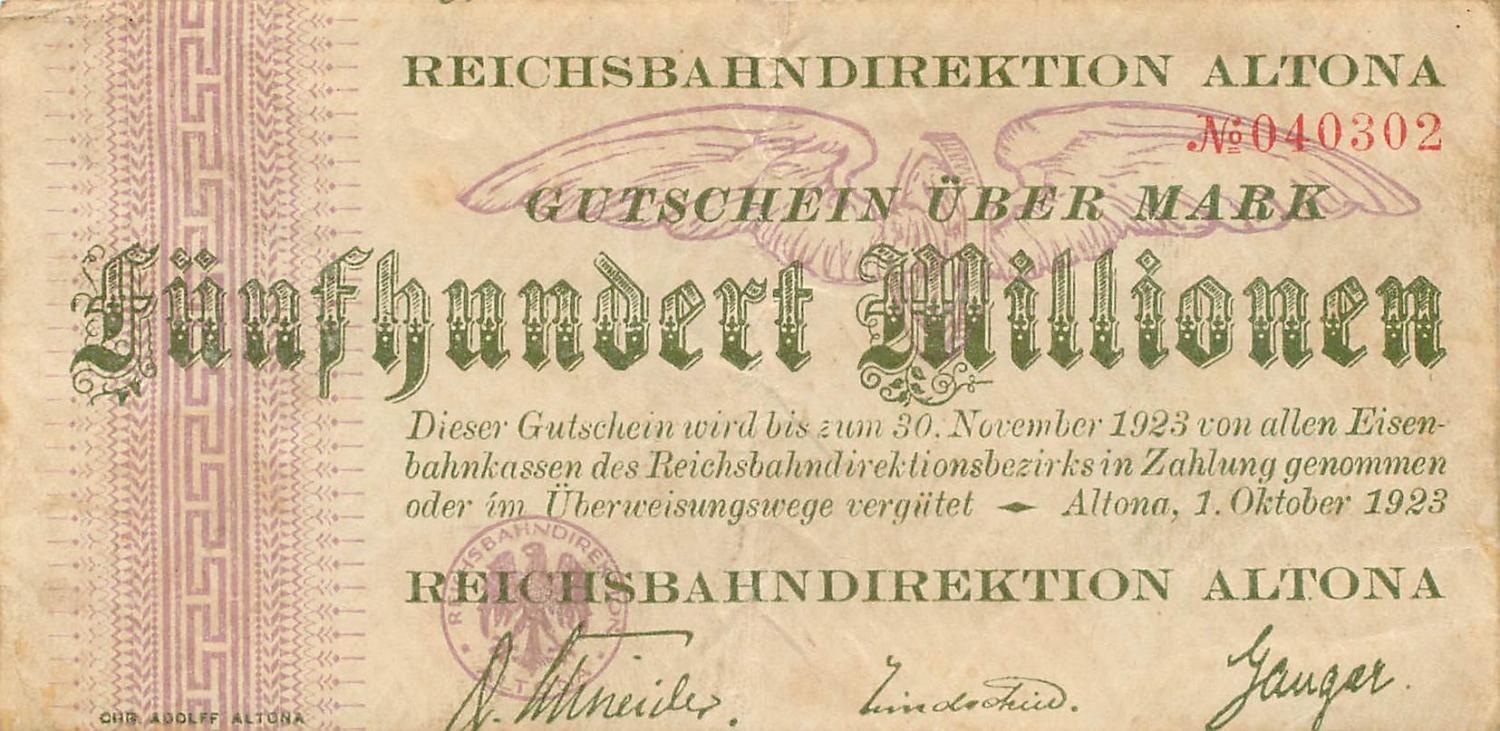 REICHSBAHNDIREKTION ALTONA
№ 040302
GUTSCHEIN ÜBER MARK
Fünfhundert Millionen
Dieser Gutschein wird bis zum 30. November 1923 von allen Eisen-
bahnkassen des Reichsbahndirektionsbezirks in Zahlung genommen
oder im Überweisungswege vergütet – Altona, 1. Oktober 1923
REICHSBAHNDIREKTION ALTONA
REICHSBAHNDIREKTION
Schneider
CHR. ADOLFF ALTONA